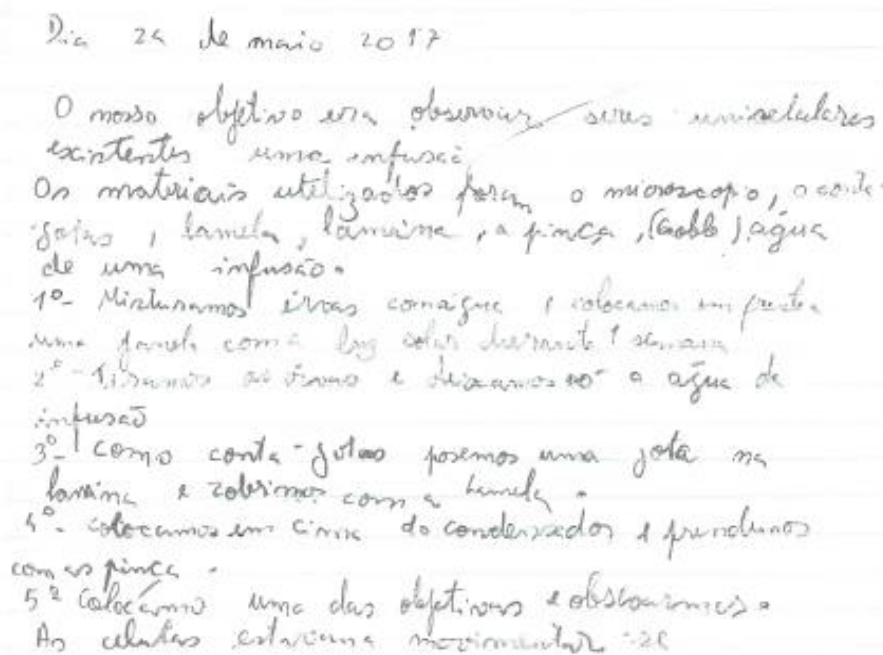 Dia 24 de maio 2017
O nosso objetivo era observar seres uniselulares
existentes uma infusaõ
Os matriais utelizados foram o microscopio, o conta-
gotas, lamela, lameina, a pinça, água
de uma infusão.
1º- Misturamos érvas com aigua e colocamos em frente a
uma janela com a luz solar durante 1 semana
2º- Tiramos as érvas e deixamos só a água de
infusaõ
3º- como conta-gotas posemos uma gota na
lamina e cobrimos com a lamela.
4º- colocamos em cima do condensador e prendemos
com as pinça.
5º colocámos uma das objetivas e observamos.
As celulas estavam a movimentar-se